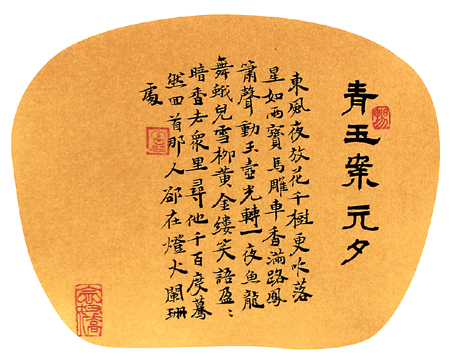 青玉案 元夕
東風夜放花千樹更吹落
星如雨寶馬雕車香滿路鳳
簫聲動玉壺光轉一夜魚龍
舞蛾兒雪柳黃金縷笑語盈〻
暗香去衆里尋他千百度驀
然回首那人郤在燈火闌珊
處